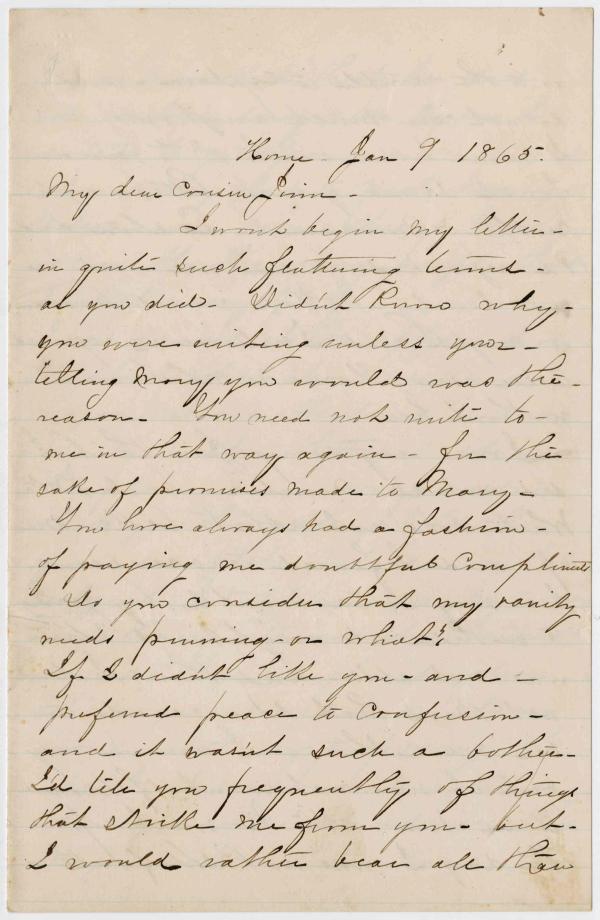 Home - Jan 9 1865.
My dear Cousin
I wont begin my letter -
in quite such flattering terms -
as you did - Didn't know why -
you were writing unless your -
telling Mary you would was the -
reason - You need not write to -
me in that way again - for the
sake of promises made to Mary -
You have always had a fashion -
of paying me doubtful compliments
Do you consider that my vanity
needs pruning - or what?
If I didn't like you - and -
preferred peace to confusion -
and it wasn't such a bother -
I'd tell you frequently of things
that strike me from you - but -
I would rather bear all